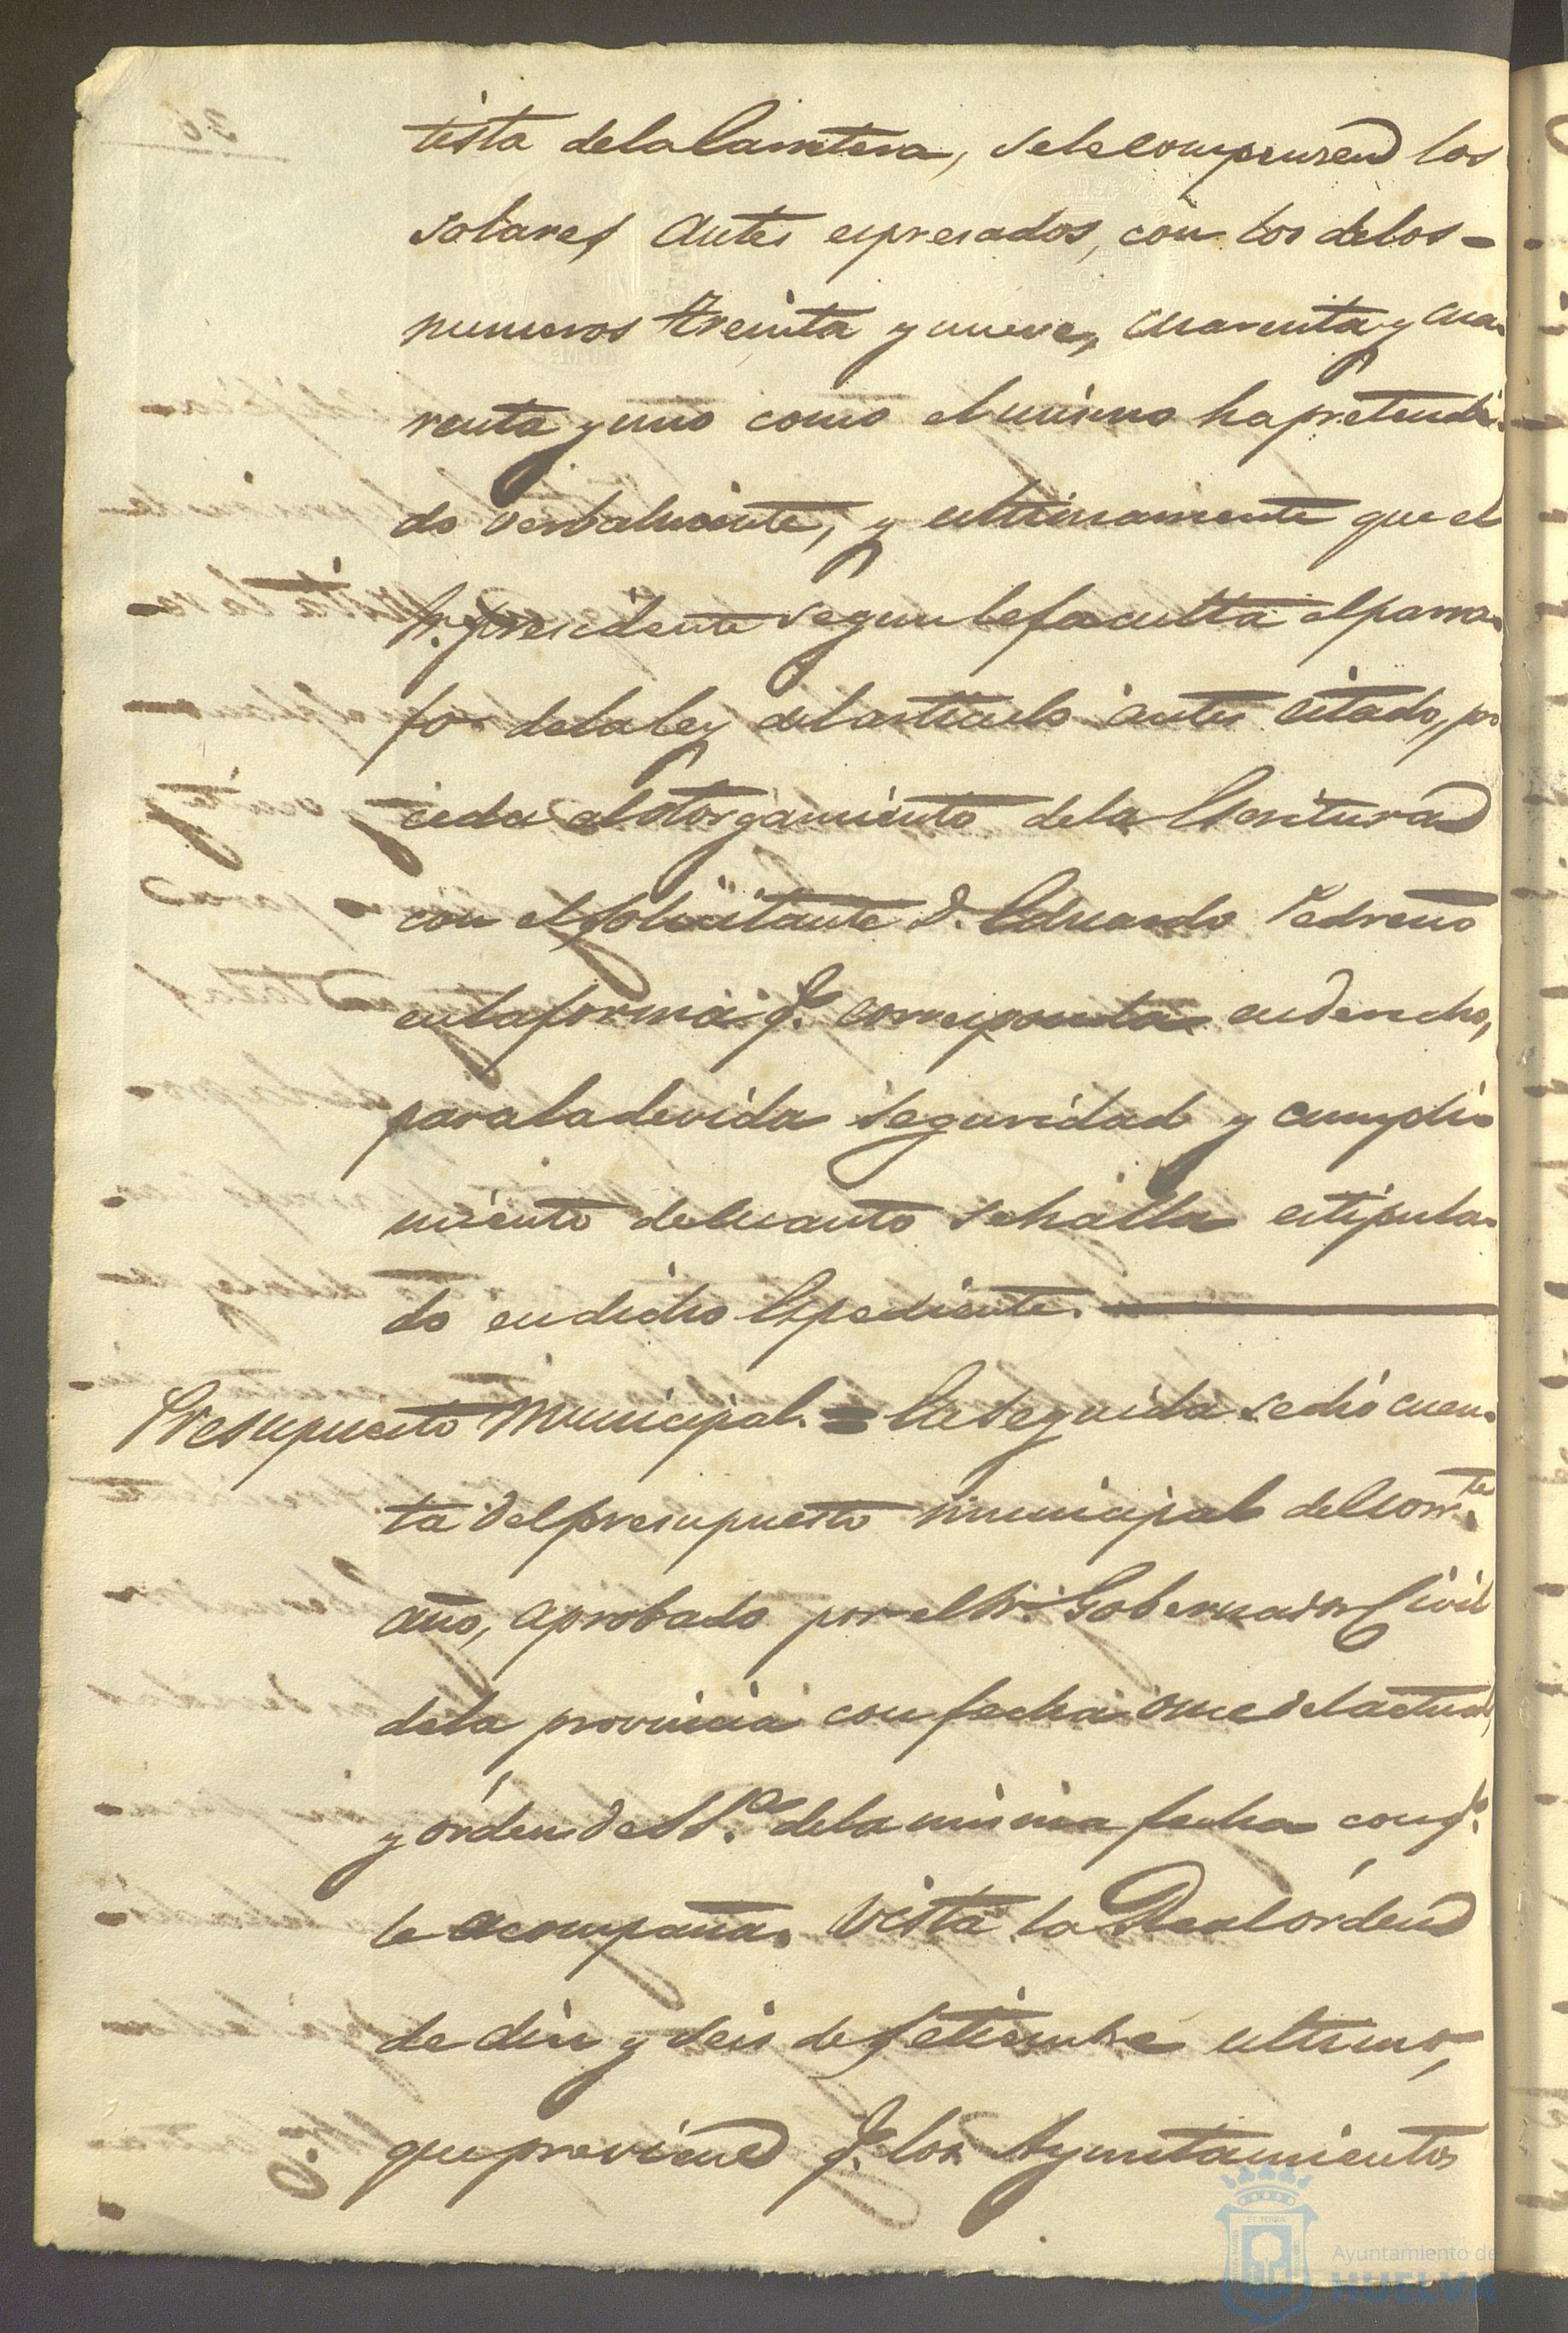 tista de la Carretera, se le compensen los
solares antes espresados, con los de los
numeros treinta y nueve, cuarenta y cua-
renta y uno como el mismo ha pretendi-
do verbalmente, y ultimamente que el
Sr. Presidente segun le faculta el parra-
fo de la ley del articulo antes citado, pro
ceda al otorgamiento de la Escritura
con el solicitante D. Eduardo Pedreño
en la forma q.e corresponda en derecho,
para la devida seguridad y cumpli-
miento de cuanto se halla estipula-
do en dicho Espediente.
Presupuesto Municipal. = En seguida se dió cuen-
ta del presupuesto municipal del corr.te
año, aprobado por el Sr. Gobernador Civil
de la provincia con fecha once del actual,
y órden de S.S.a de la misma fecha con q.e
le acompaña. Vista la Real órden
de diez y seis de Setiembre ultimo,
que previene q.e los Ayuntamientos
Ayuntamiento de
HUELVA